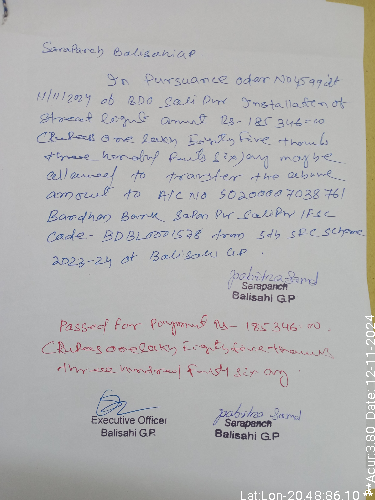 Sarapanch Balisahi G.P
In Pursuance odar No 4599 dt
11/11/2024 of BDO Salipur Installation of
Street light amut Rs- 185346=00
one lakh Eighty five thousand
three hundred fourty six) only may be
allowed to transfer the above
amount to A/C No 50200007038761
Bandhan Bank, Salipur IFSC
Code- BDBL0001578 from 5th SFC Scheme
2023-24 of Balisahi G.P.
Sarapanch
Balisahi G.P
Passed for Payment Rs- 185346=00
one lakh Eighty five thousand
three hundred fourty six) only.
Executive Officer
Balisahi G.P.
Sarapanch
Balisahi G.P
Lat:Lon-20.48:86.10
**Acur:3.80 Date: 12-11-2024